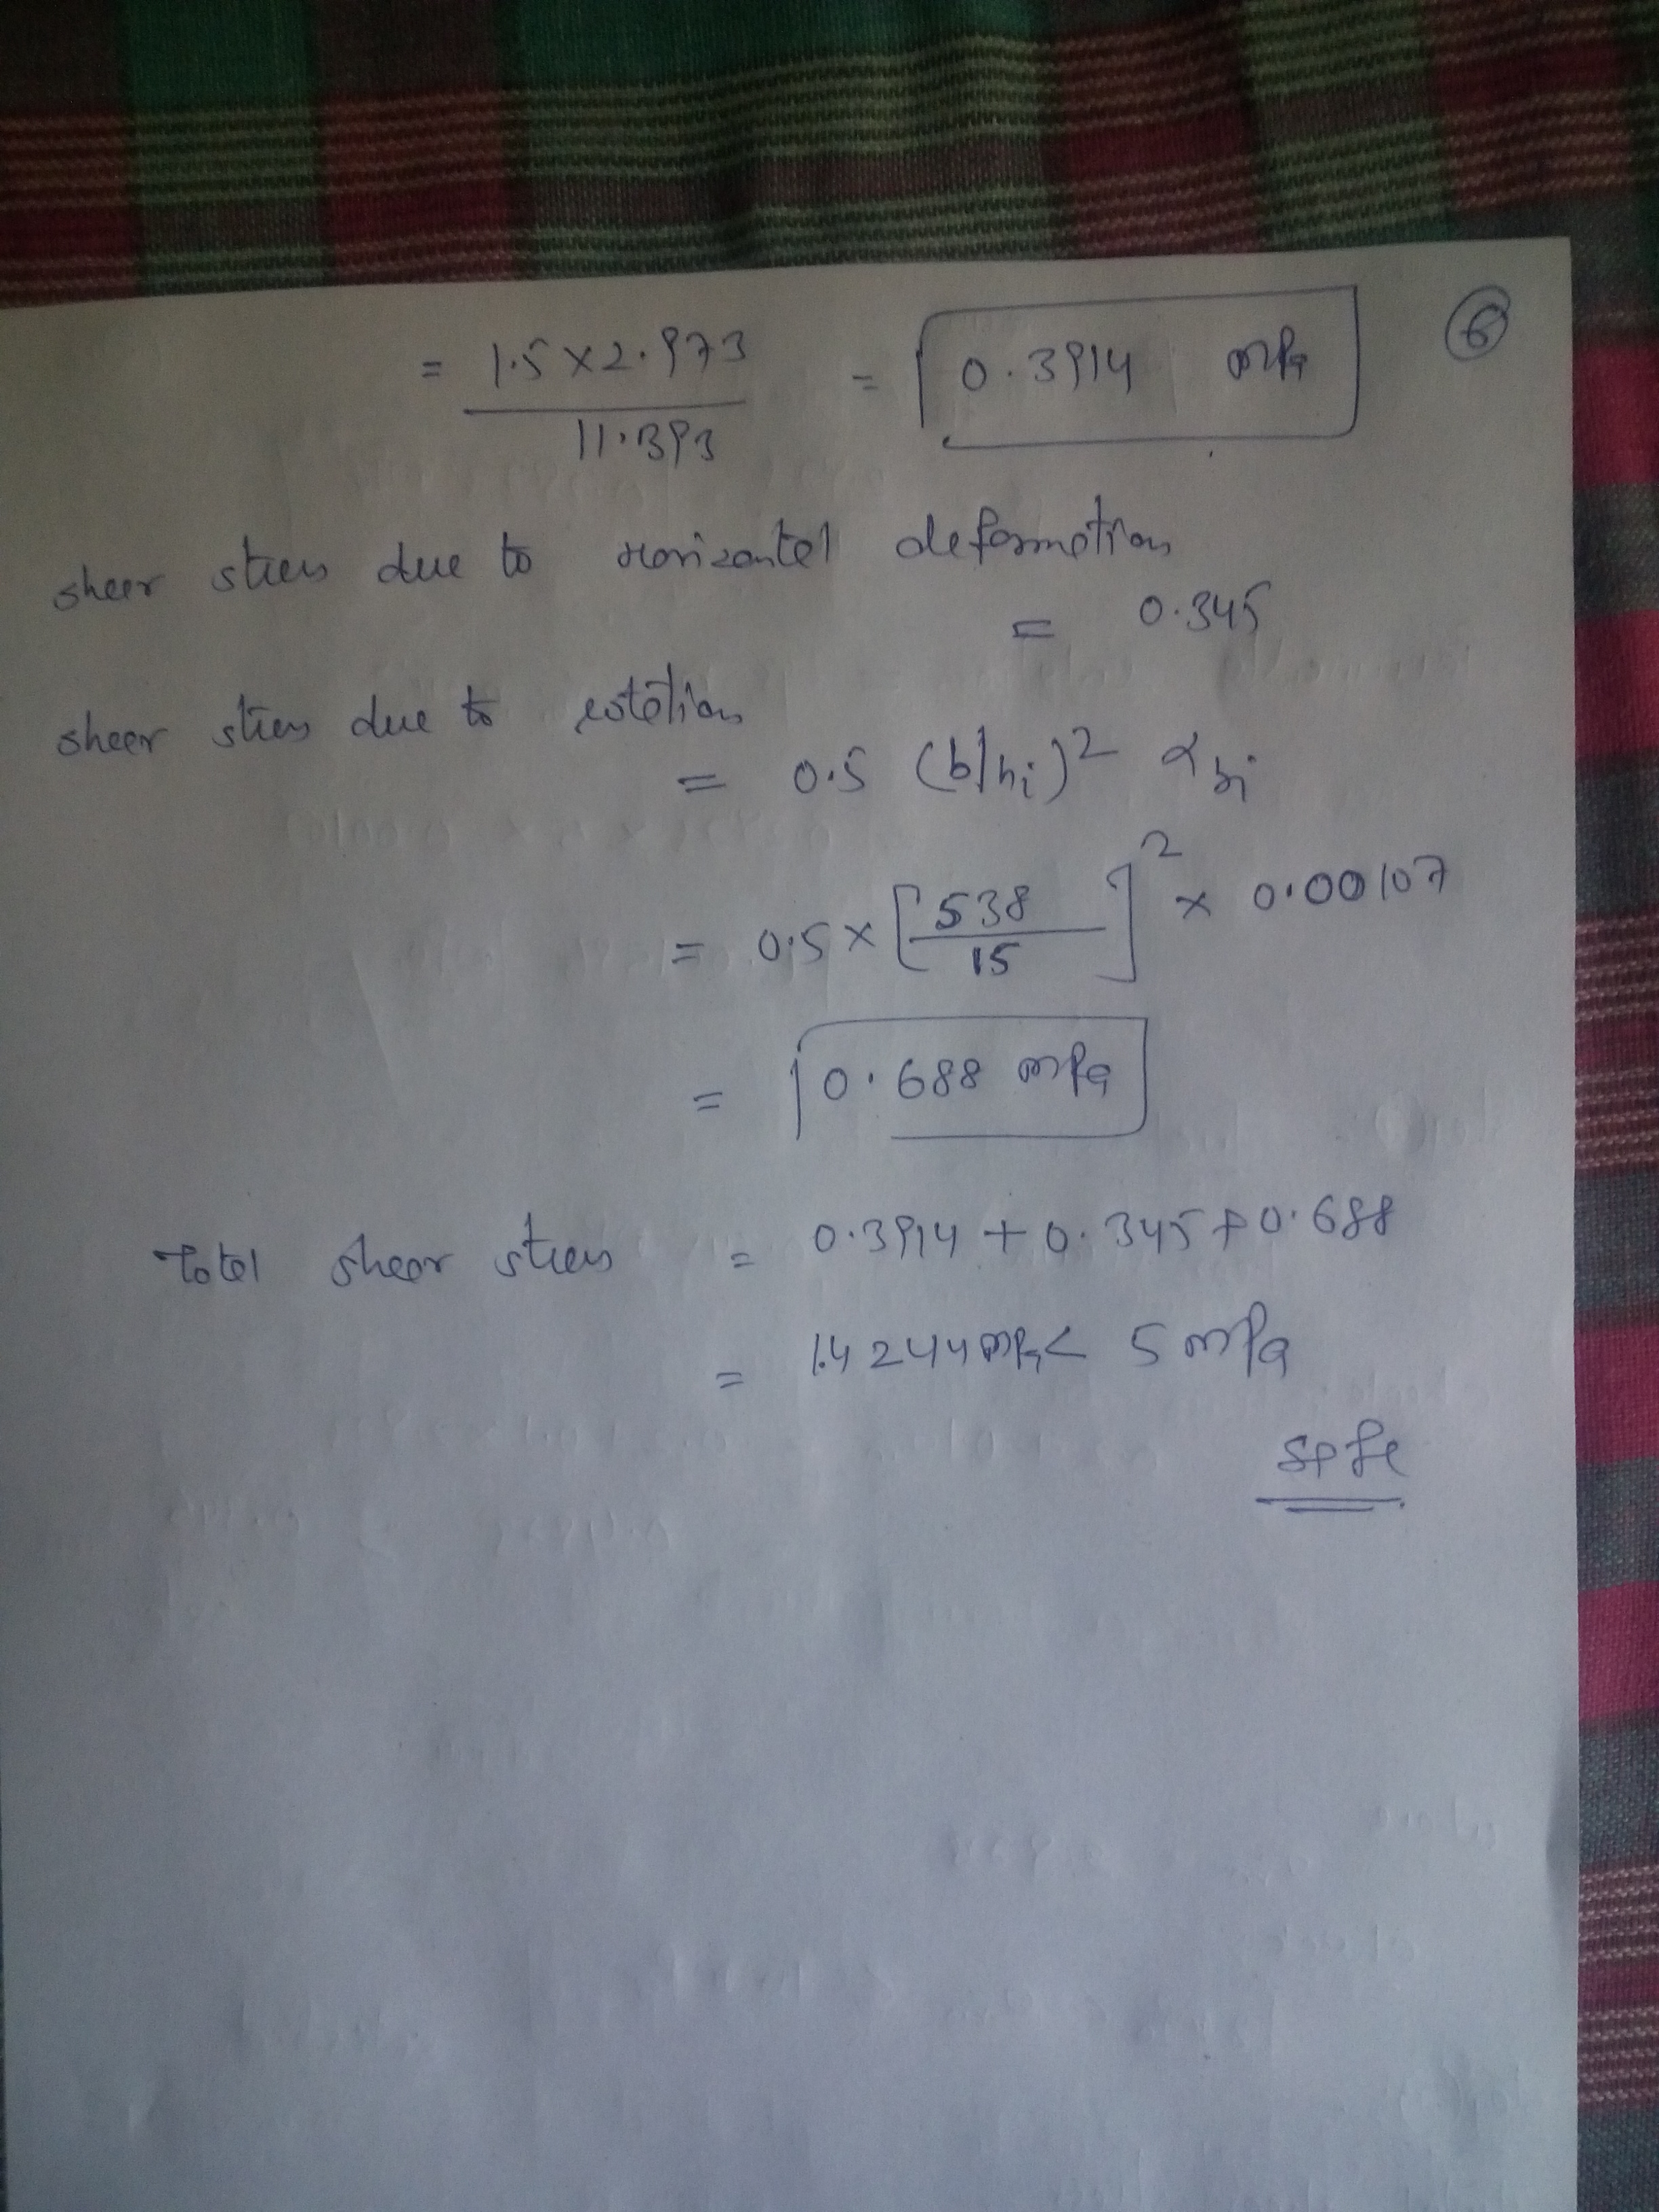 6
= 1.5 × 2.973 / 11.393 = 0.3914 mPa
shear stress due to Horizontal deformation
= 0.345
shear stress due to rotation
= 0.5 (b/hi)² αbi
= 0.5 × [538/15]² × 0.00107
= 0.688 mPa
Total shear stress = 0.3914 + 0.345 + 0.688
= 1.4244 mPa < 5 mPa
safe